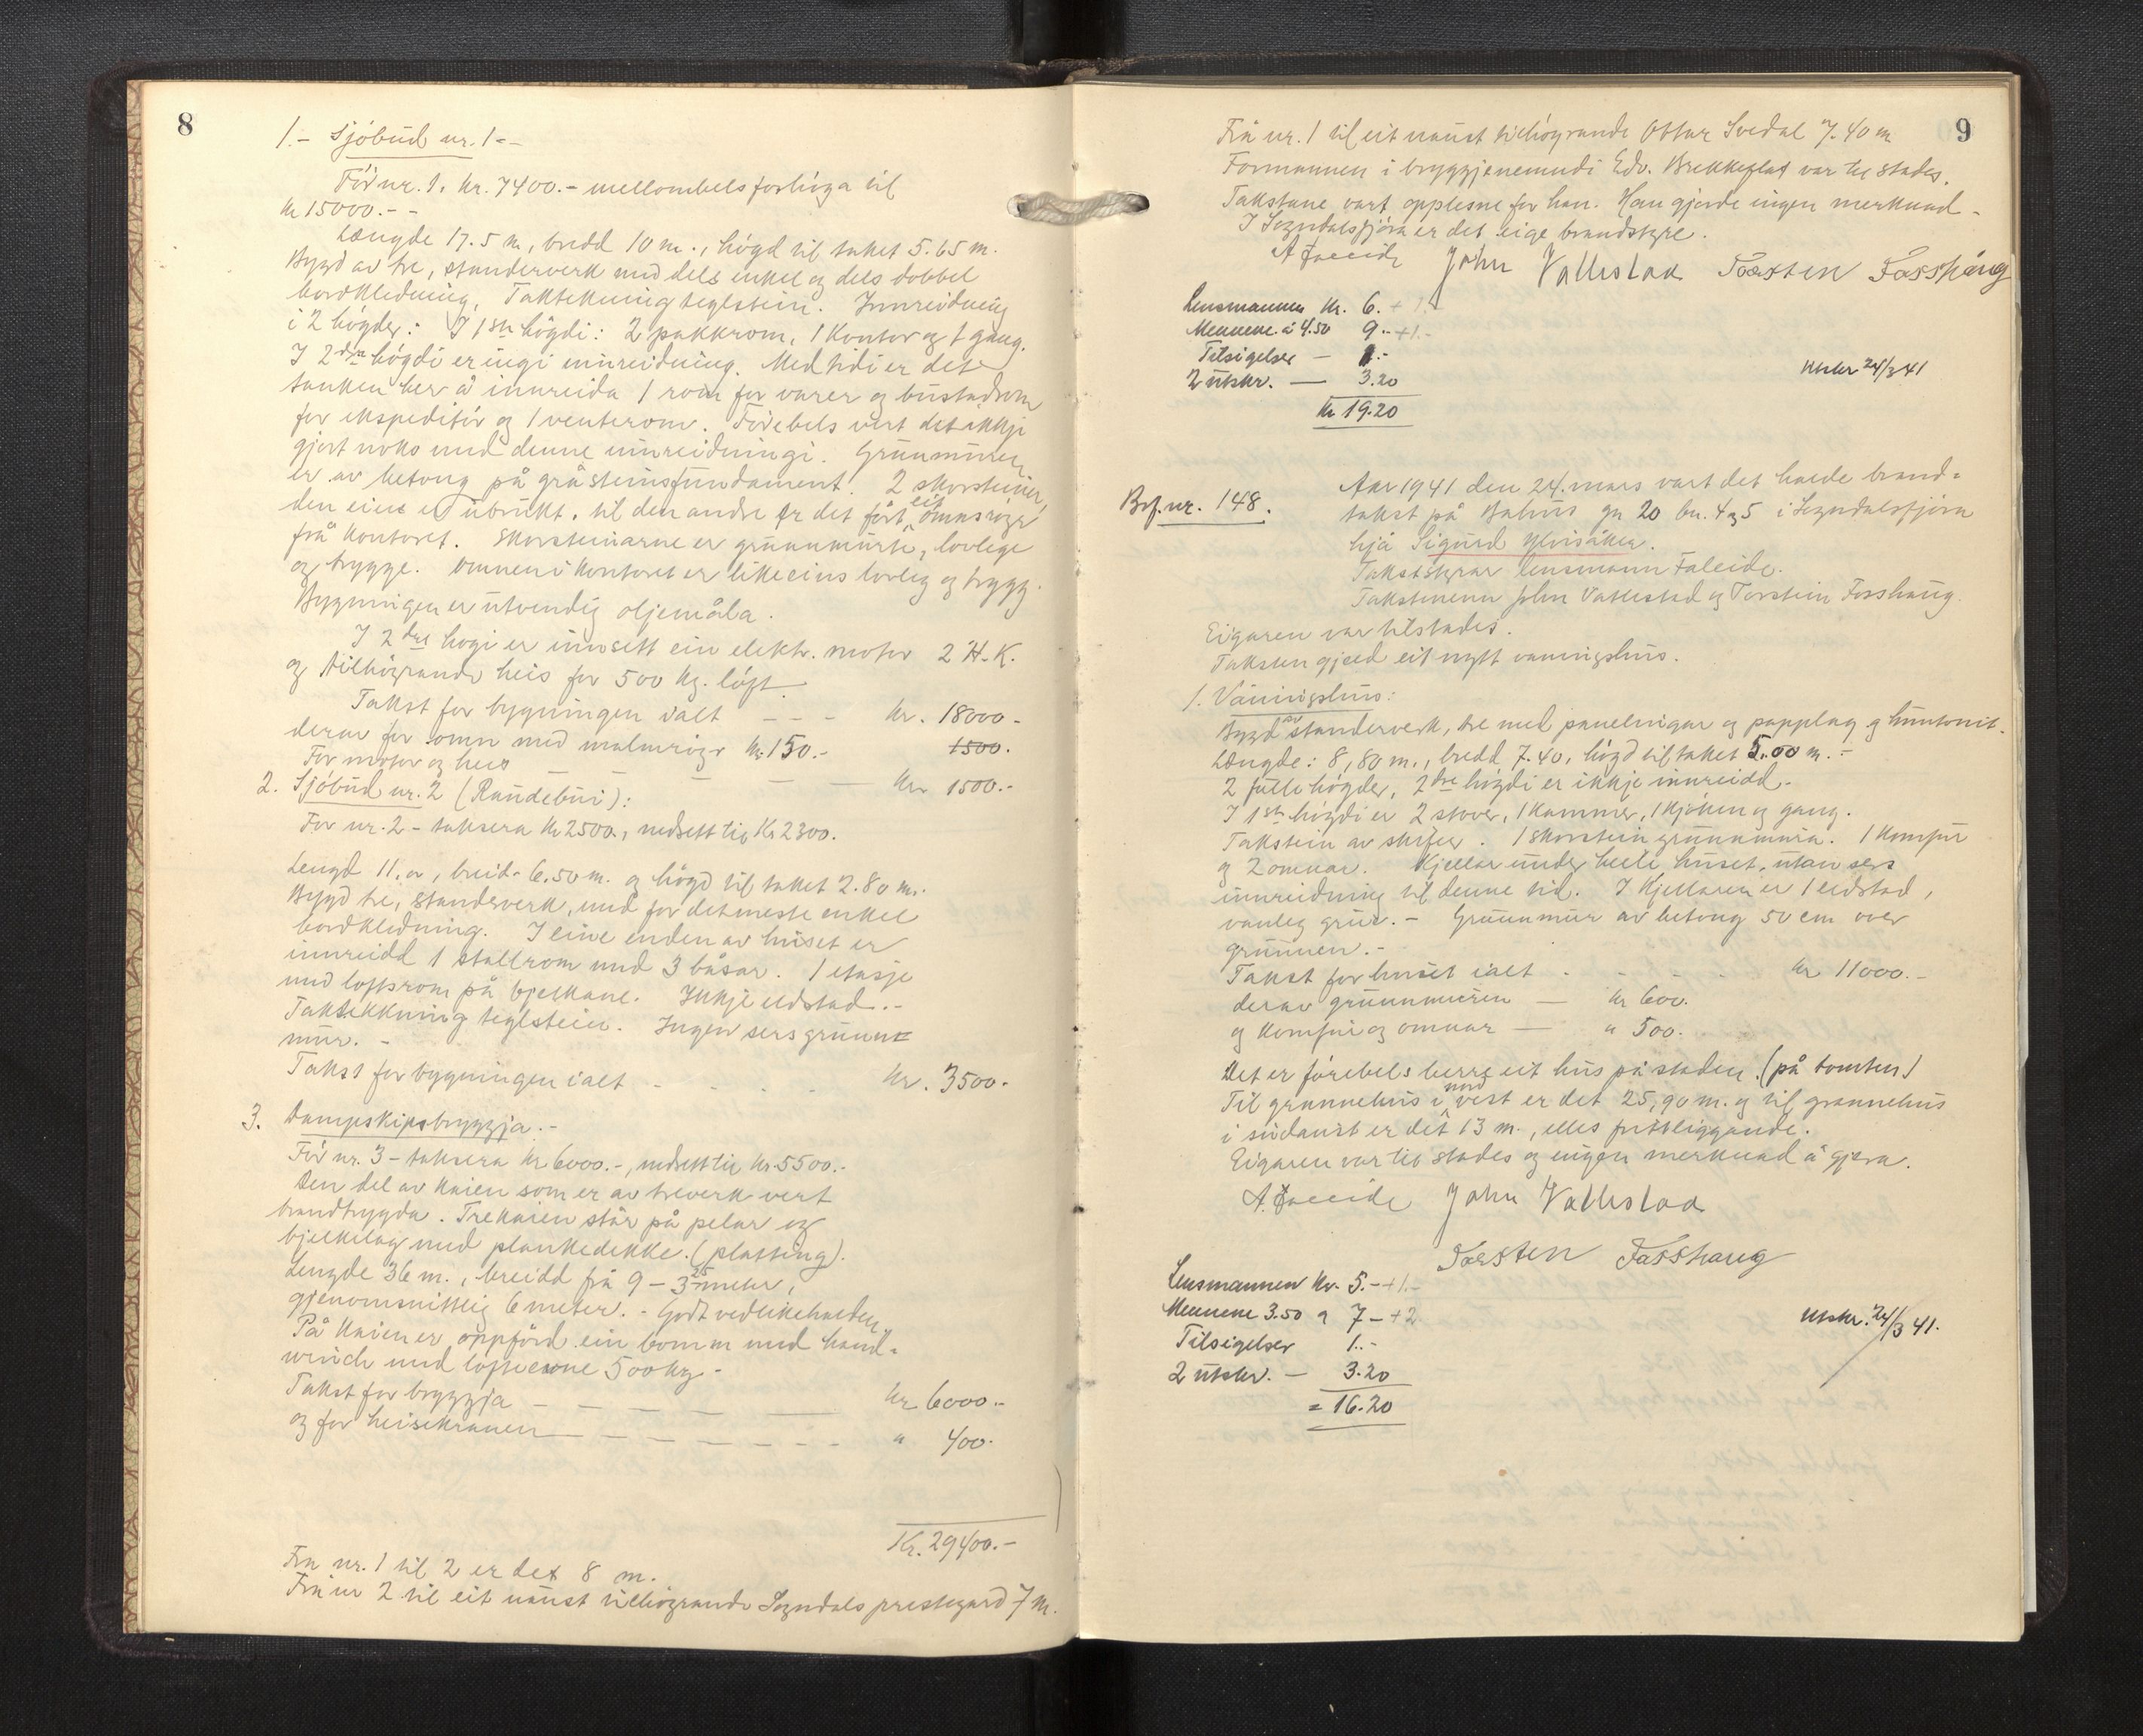 8
1.- Sjóbud nr. 1.-
Fór nr. 1. kr. 7400.- mellombels forhóga til
kr 15000.-
Længde 17.5 m, bredd 10 m., högd til taket 5.65 m.
Bygd av tre, standerverk med dels enkel og dels dobbel
bordkledning. Taktekning teglstein. Innreidning
i 2 högder: I 1ste högdi: 2 pakkrom, 1 kontor og 1 gang.
I 2dre högdi er ingi innreidning. Med tidi er det
tanken her å innreida 1 rom for varer og bustadrom
for ekspeditór og 1 venterom. Fórebels vert det ikkje
gjort noko med denne innreidningi. Grunnmuren
er av betong på gråsteinsfundament. 2 skorsteiner,
den eine er ubrukt, til den andre er det fórt eit omnsróyr
frå kontoret. Skorsteinarne er grunnmurte, lovlege
og trygge. Omnen i kontoret er likeeins lovleg og trygg.
Bygningen er utvendig oljemåla.
I 2dre hogi er innsett ein elektr. motor 2 H.K.
og tilhóyrande heis for 500 kg. lóft.
Takst for bygningen ialt - - - kr. 18000.-
derav for omn med malmróyr kr. 150.- 1500.
For motor og heis - - - - - kr 1500.-
2. Sjóbud nr. 2 (Raudebui):
For nr. 2 - taksera kr 2500, nedsett til kr 2300.
Lengd 11. m, breid. 6.50 m. og högd til taket 2.80 m.
Bygd tre, standerverk, med for detmeste enkel
bordkledning. I eine enden av huset er
innreidd 1 stallrom med 3 båsar. 1 etasje
med loftsrom på bjelkane. Inkje eldstad.-
Taktekkning teglstein. Ingen sers grunn=
mur. -
Takst for bygningen ialt - - - - kr. 3500.-
3. Dampskipsbryggja.-
Fór nr. 3 - taksera kr 6000.-, nedsett til kr. 5500.-
Den del av kaien som er av treverk vert
brandtrygda. Trekaien står på pelar og
bjelkelag med plankedekke. (platting).
Lengde 36 m., breidd frå 9 - 3.25 meter,
gjenomsnittlig 6 meter. - Godt vedlikehalden.
På kaien er oppfórd ein bomm med hand=
winch med lófteevne 500 kg -
Takst for bryggja - - - - - kr 6000.-
og for heisekranen - - - - - - - " 400.-
Kr. 29400.-
Frå nr. 1 til 2 er det 8 m.
Frå nr 2 til eit naust tilhóyrande Sogndals prestegard 7 m.
9
Frå nr. 1 til eit naust tilhóyrande Ottar Svedal 7.40 m
Formannen i bryggjenemndi Edv. Brekkeflat var til stades.
Takstane vart opplesne for han. Han gjorde ingen merknad.-
I Sogndalsfjóra er det eige brandstyre.
A Faleide John Vallestad Torsten Fosshaug
Lensmannen kr. 6.- + 1.-
Mennene. à 4.50 9.- + 1.-
Tilsigelser - 1.-
2 utskr. - 3.20
kr 19.20
Utskr 24/3 41
Brf. nr. 148.
Aar 1941 den 24. mars vart det halde brand=
takst på Bahus gn 20 bn. 4 og 5 i Sogndalsfjóra
hjå Sigurd Ylvisåker.
Takststyrar lensmann Faleide.
Takstmenn John Vallestad og Torstein Fosshaug.
Eigaren var tilstades.
Taksten gjeld eit nytt våningshus.
1. Våningshus:
Bygd av standerverk, tre med panelningar og papplag og huntonit.
Længde: 8,80 m., bredd 7.40, högd til taket 5.00 m.-
2 fulle högder, 2dre högdi er ikkje innreidd.-
I 1ste högdi er 2 stover, 1 kammer, 1 kjóken og gang.
Takstein av skifer. 1 skorstein grunnmura. 1 komfur
og 2 omnar. Kjellar under heile huset, utan sers
innreidning til denne tid. I kjellaren er 1 eldstad,
vanleg grue.- Grunnmur av betong 50 cm over
grunnen.-
Takst for huset ialt - - - - kr 11000.-
derav grunnmuren - kr 600.
og komfur og omnar - " 500.-
Det er fórebels berre eit hus på staden. (på tomten)
Til grannehus i nord vest er det 25,90 m. og til grannehus
i sudaust er det 13 m., elles frittliggande.
Eigaren var til stades og ingen merknad å gjera.
A. Faleide John Vallestad
Torsten Fosshaug
Lensmannen kr. 5.- + 1.-
Mennene 3.50 a 7 - + 2
Tilsigelser 1.-
2 utskr. - 3.20
= 16.20
Utskr. 24/3 41.